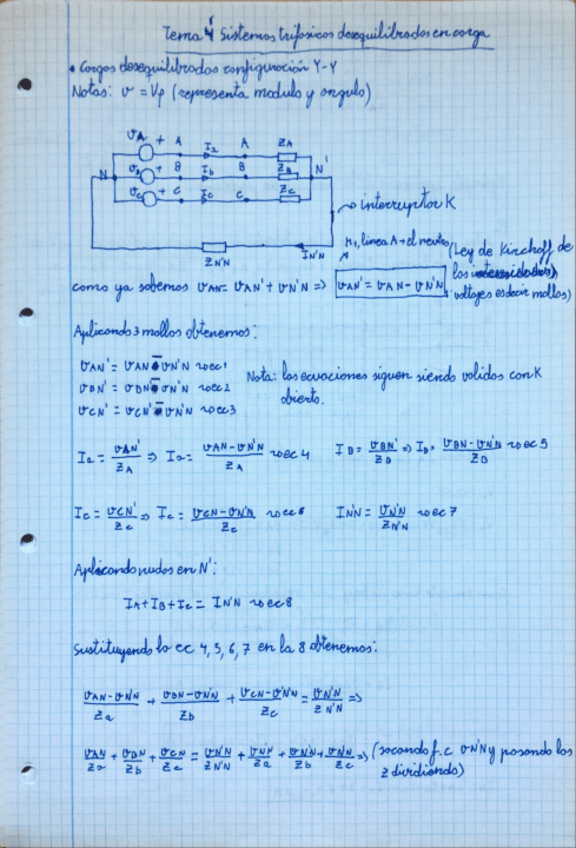 Tema 4 Sistemas trifasicos desequilibrados en carga
• Cargas desequilibradas configuración Y-Y
Notas: v = Vp (representa modulo y angulo)
VA + A Ia A ZA
N VB + B Ib B ZB N'
VC + C Ic C ZC
interruptor K
ZN'N IN'N
M1, linea A + el neutro (Ley de Kirchoff de los voltajes es decir mallas)
como ya sabemos VAN = VAN' + VN'N => VAN' = VAN - VN'N
Aplicando 3 mallas obtenemos:
VAN' = VAN - VN'N ~> ec 1
VBN' = VBN - VN'N ~> ec 2
VCN' = VCN' - VN'N ~> ec 3
Nota: las ecuaciones siguen siendo validas con K
abierto.
Ia = VAN'/ZA => Ia = VAN-VN'N/ZA ~> ec 4 IB = VBN'/ZB => IB = VBN-VN'N/ZB ~> ec 5
Ic = VCN'/Zc => Ic = VCN-VN'N/Zc ~> ec 6 IN'N = VN'N/ZN'N ~> ec 7
Aplicando nudos en N':
IA+IB+Ic = IN'N ~> ec 8
Sustituyendo la ec 4, 5, 6, 7 en la 8 obtenemos:
VAN-VN'N/Za + VBN-VN'N/Zb + VCN-VN'N/Zc = VN'N/ZN'N =>
VAN/Za + VBN/Zb + VCN/Zc = VN'N/ZN'N + VN'N/Za + VN'N/Zb + VN'N/Zc => (sacando f.c VN'N y pasando los
Z dividiendo)